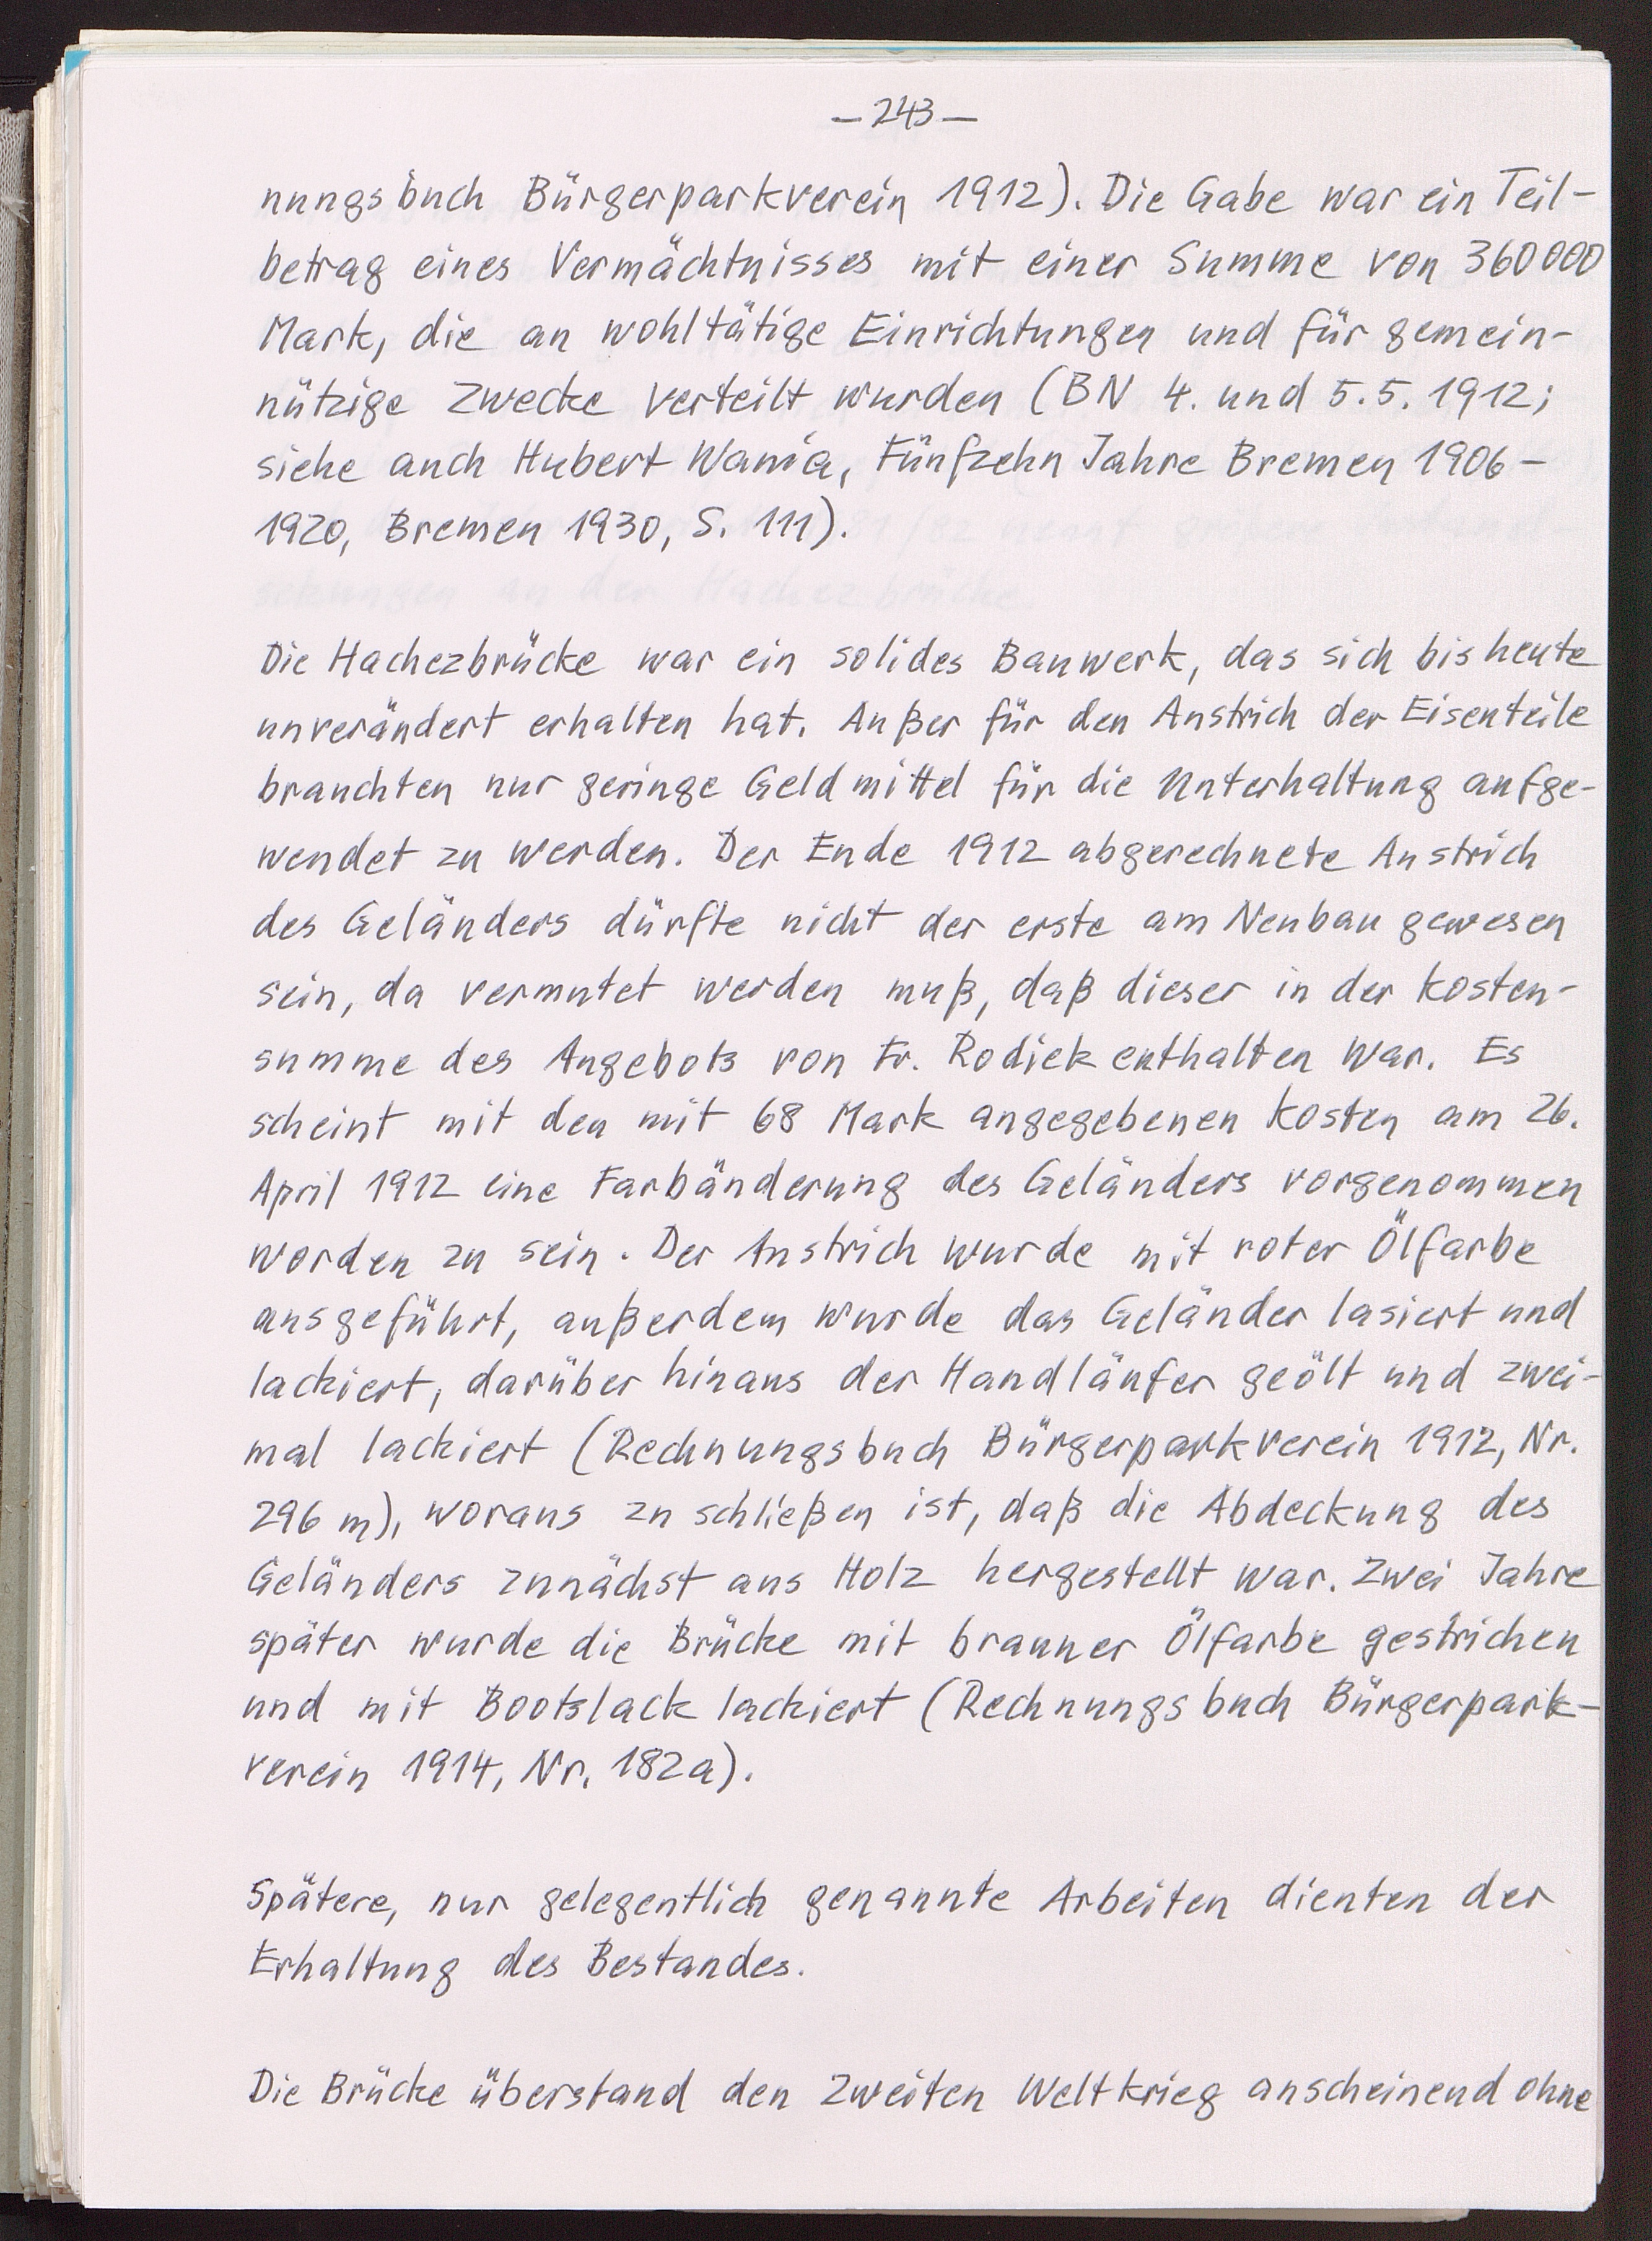 – 243 –
nungsbuch Bürgerparkverein 1912). Die Gabe war ein Teil-
betrag eines Vermächtnisses mit einer Summe von 360000
Mark, die an wohltätige Einrichtungen und für gemein-
nützige Zwecke verteilt wurden (BN 4. und 5.5.1912;
siehe auch Hubert Wania, Fünfzehn Jahre Bremen 1906-
1920, Bremen 1930, S. 111).
Die Hachezbrücke war ein solides Bauwerk, das sich bis heute
unverändert erhalten hat. Außer für den Anstrich der Eisenteile
brauchten nur geringe Geldmittel für die Unterhaltung aufge-
wendet zu werden. Der Ende 1912 abgerechnete Anstrich
des Geländers dürfte nicht der erste am Neubau gewesen
sein, da vermutet werden muß, daß dieser in der Kosten-
summe des Angebots von Fr. Rodiek enthalten war. Es
scheint mit den mit 68 Mark angegebenen Kosten am 26.
April 1912 eine Farbänderung des Geländers vorgenommen
worden zu sein. Der Anstrich wurde mit roter Ölfarbe
ausgeführt, außerdem wurde das Geländer lasiert und
lackiert, darüber hinaus der Handläufer geölt und zwei-
mal lackiert (Rechnungsbuch Bürgerparkverein 1912, Nr.
296 m), woraus zu schließen ist, daß die Abdeckung des
Geländers zunächst aus Holz hergestellt war. Zwei Jahre
später wurde die Brücke mit brauner Ölfarbe gestrichen
und mit Bootslack lackiert (Rechnungsbuch Bürgerpark-
verein 1914, Nr. 182a).
Spätere, nur gelegentlich genannte Arbeiten dienten der
Erhaltung des Bestandes.
Die Brücke überstand den Zweiten Weltkrieg anscheinend ohne